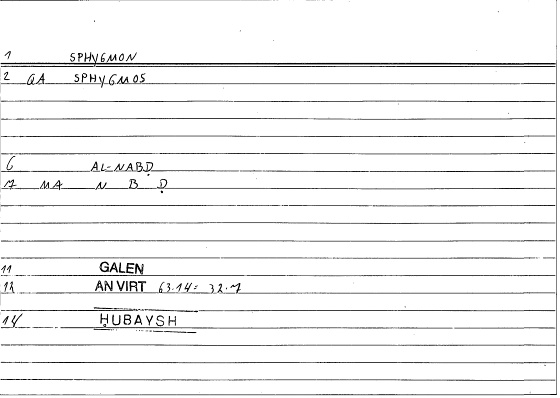 1 SPHYGMON
2 GA SPHYGMOS
6 AL-NABḌ
7 MA N B Ḍ
11 GALEN
12 AN VIRT 63.14 = 32.7
14 ḤUBAYSH